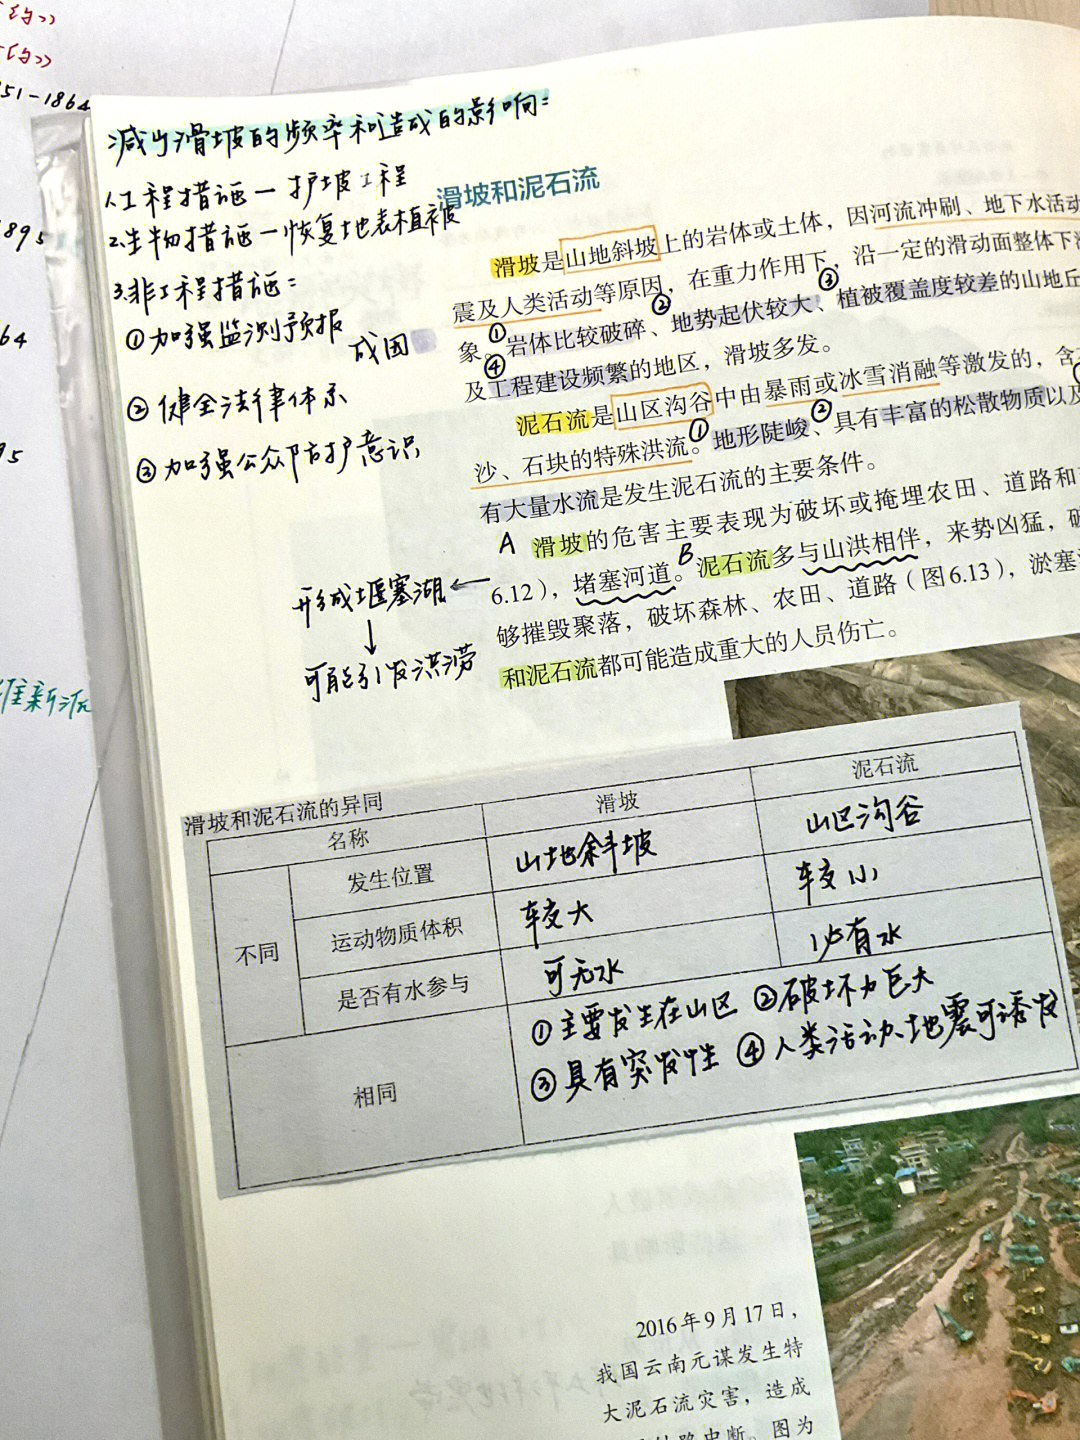 51-1864
895
64
95
维新派
减少滑坡的频率和造成的影响:
1.工程措施—护坡工程
2.生物措施—恢复地表植被
3.非工程措施:
①加强监测预报
②健全法律体系
③加强公众防护意识
成因
滑坡和泥石流
滑坡是山地斜坡上的岩体或土体，因河流冲刷、地下水活动
震及人类活动等原因，在重力作用下，沿一定的滑动面整体下滑
② ③
象。①岩体比较破碎、地势起伏较大、植被覆盖度较差的山地丘
④
及工程建设频繁的地区，滑坡多发。
泥石流是山区沟谷中由暴雨或冰雪消融等激发的，含
沙、石块的特殊洪流。①地形陡峻、②具有丰富的松散物质以及
有大量水流是发生泥石流的主要条件。
A 滑坡的危害主要表现为破坏或掩埋农田、道路和
6.12），堵塞河道。B 泥石流多与山洪相伴，来势凶猛，
够摧毁聚落，破坏森林、农田、道路（图6.13），淤塞
和泥石流都可能造成重大的人员伤亡。
形成堰塞湖←
↓
可能引发洪涝
滑坡和泥石流的异同
名称 滑坡 泥石流
不同 发生位置 山地斜坡 山区沟谷
运动物质体积 较大 较小
是否有水参与 可无水 必有水
相同 ①主要发生在山区 ②破坏力巨大
③具有突发性 ④人类活动、地震可诱发
2016年9月17日，
我国云南元谋发生特
大泥石流灾害，造成
路中断。图为